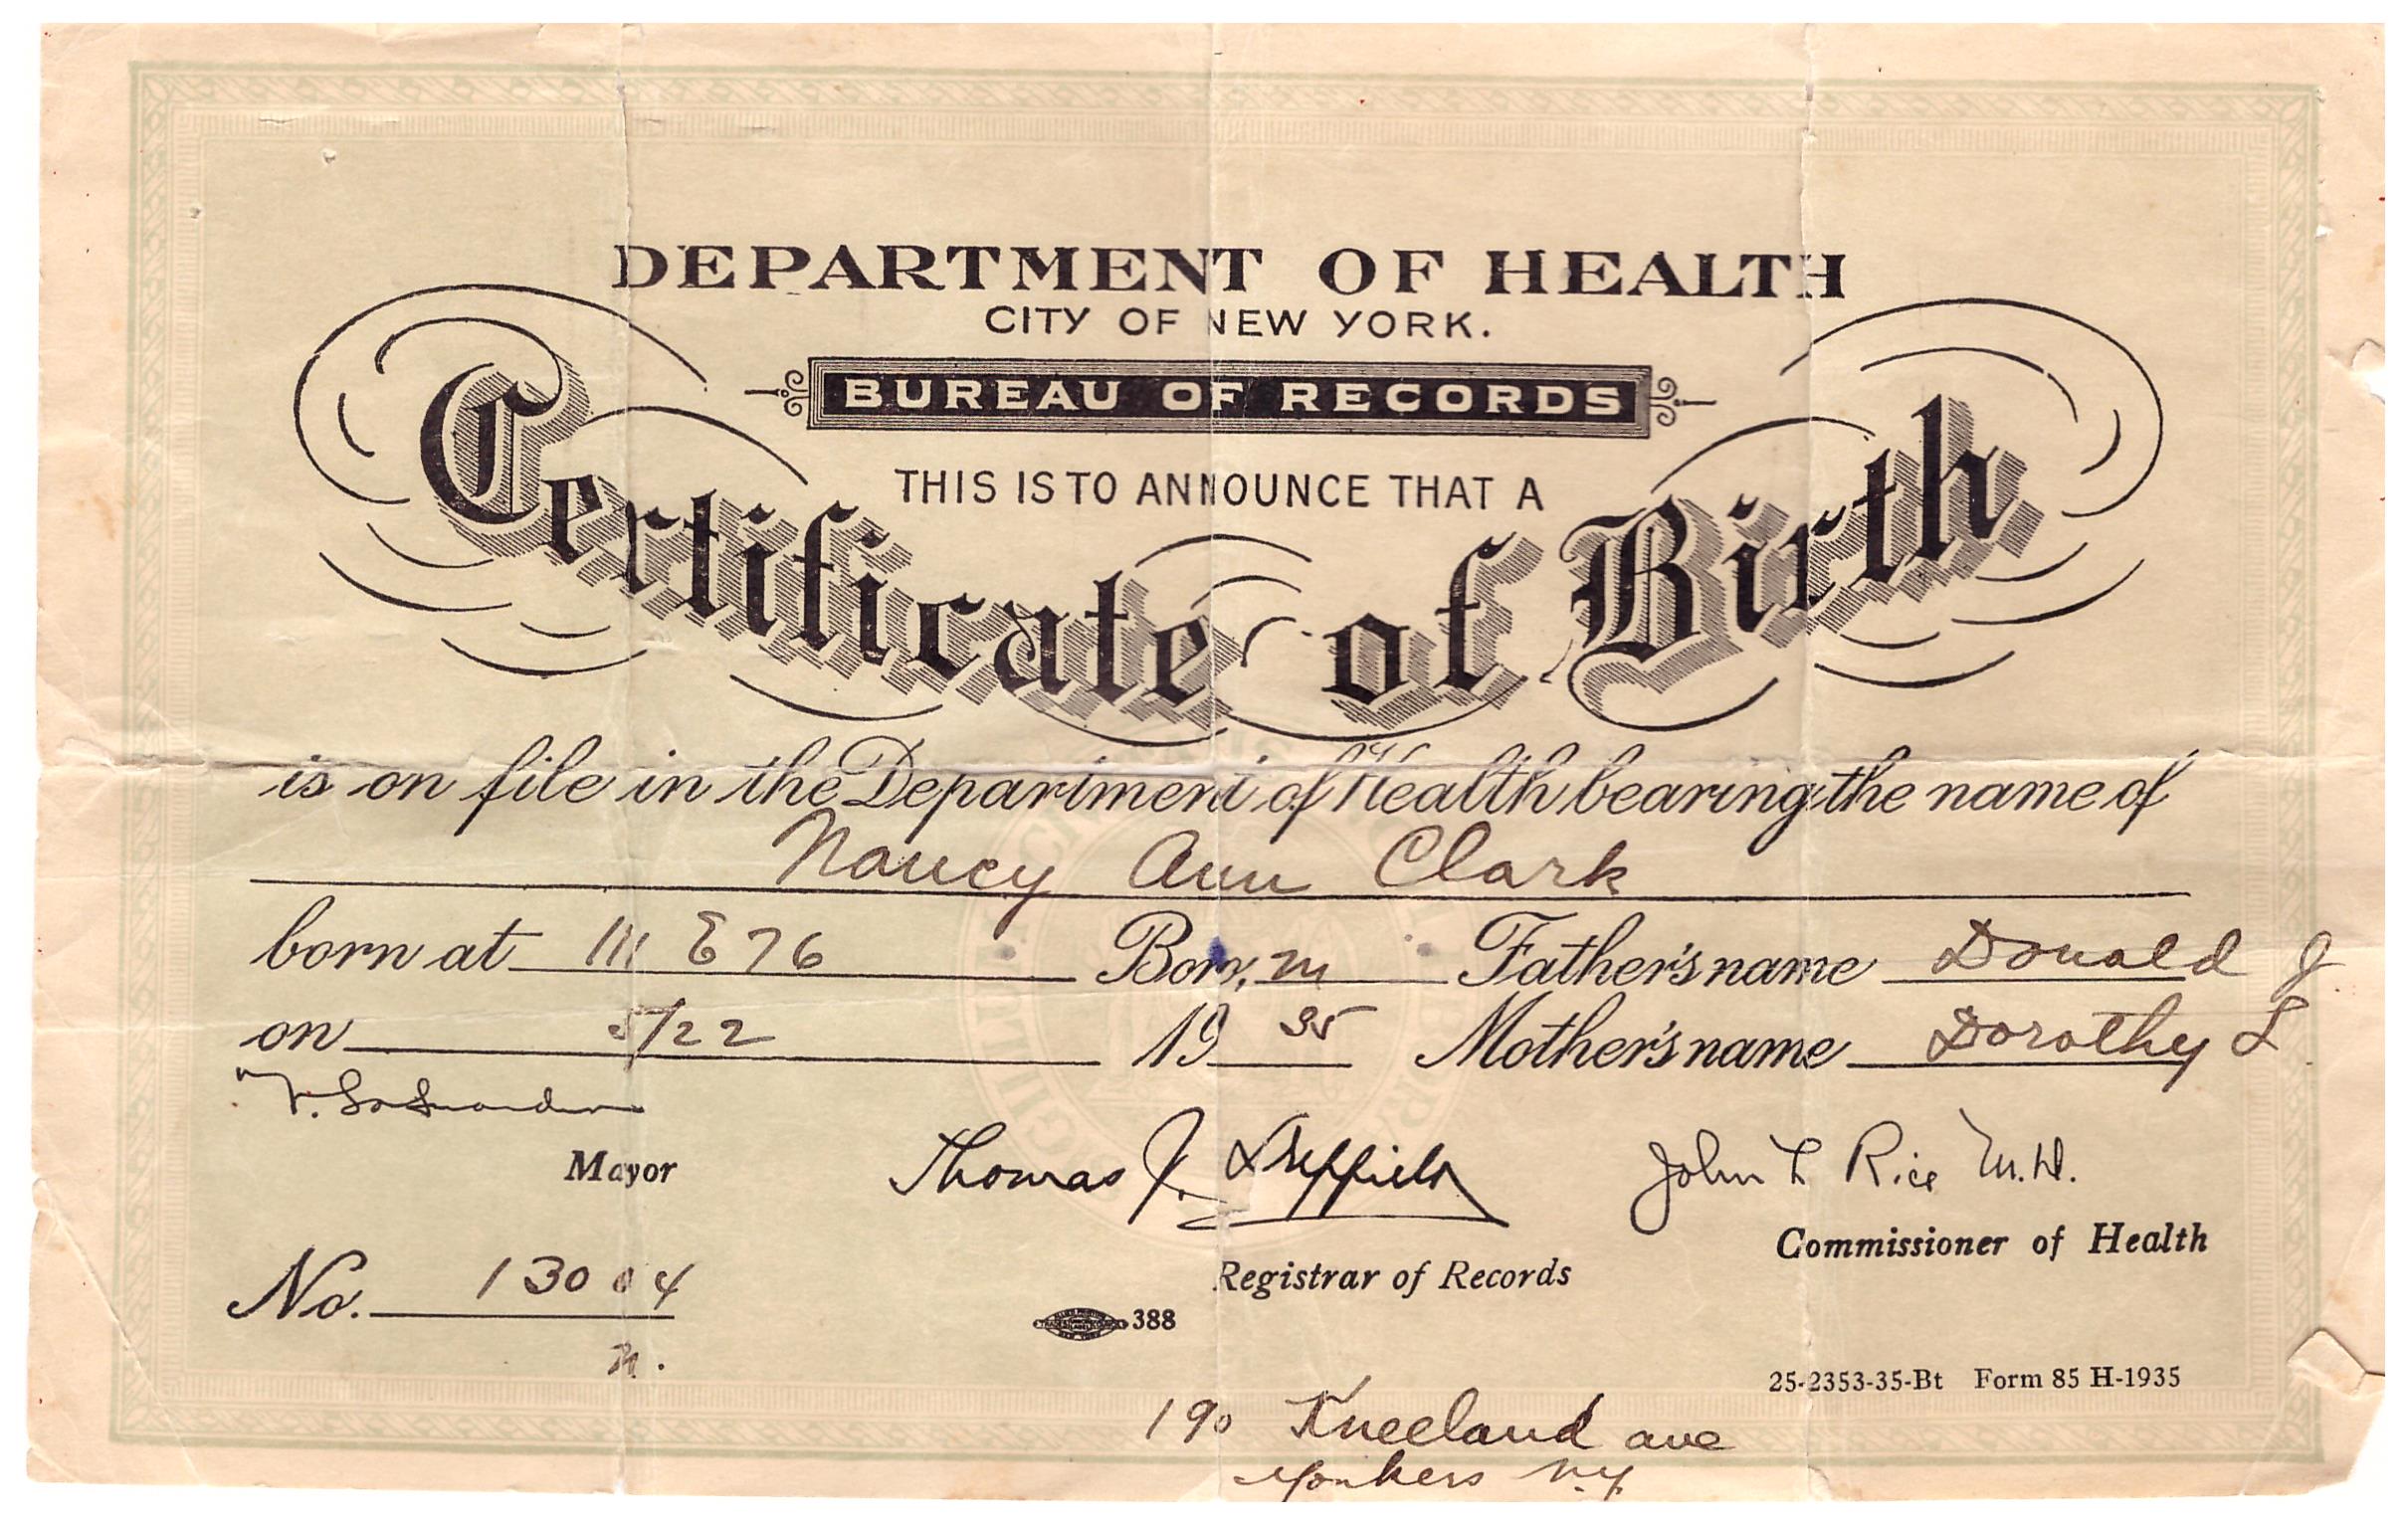 DEPARTMENT OF HEALTH
CITY OF NEW YORK.
BUREAU OF RECORDS
THIS IS TO ANNOUNCE THAT A
Certificate of Birth
is on file in the Department of Health bearing the name of
Nancy Ann Clark
born at 111 E 76 Boro, M Father's name Donald J
on 5/22 1935 Mother's name Dorothy L
F. LaGuardia
Mayor
Thomas J. Duffield
John L Rice M.D.
Commissioner of Health
Registrar of Records
No. 13004
388
25-2353-35-Bt Form 85 H-1935
190 Kneeland ave
Yonkers N.Y.